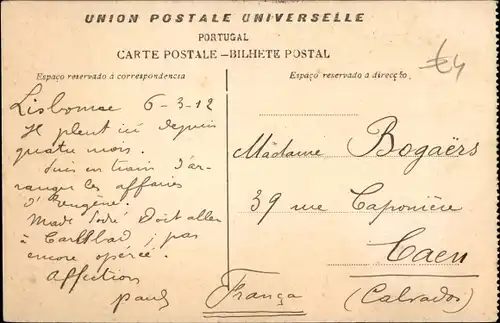 UNION POSTALE UNIVERSELLE
PORTUGAL
CARTE POSTALE—BILHETE POSTAL
Espaço reservado á correspondencia
Lisbonne 6-3-12
Il pleut ici depuis
quatre mois.
Suis en train d'ar-
ranger les affaires
d'Eugène.
Made Doit aller
à Carlsbad ; pas
encore opérée.
Affection
Paul
Espaço reservado á direcção
€4
Madame Bogaërs
39 rue Caponière
Caen
(Calvados)
França